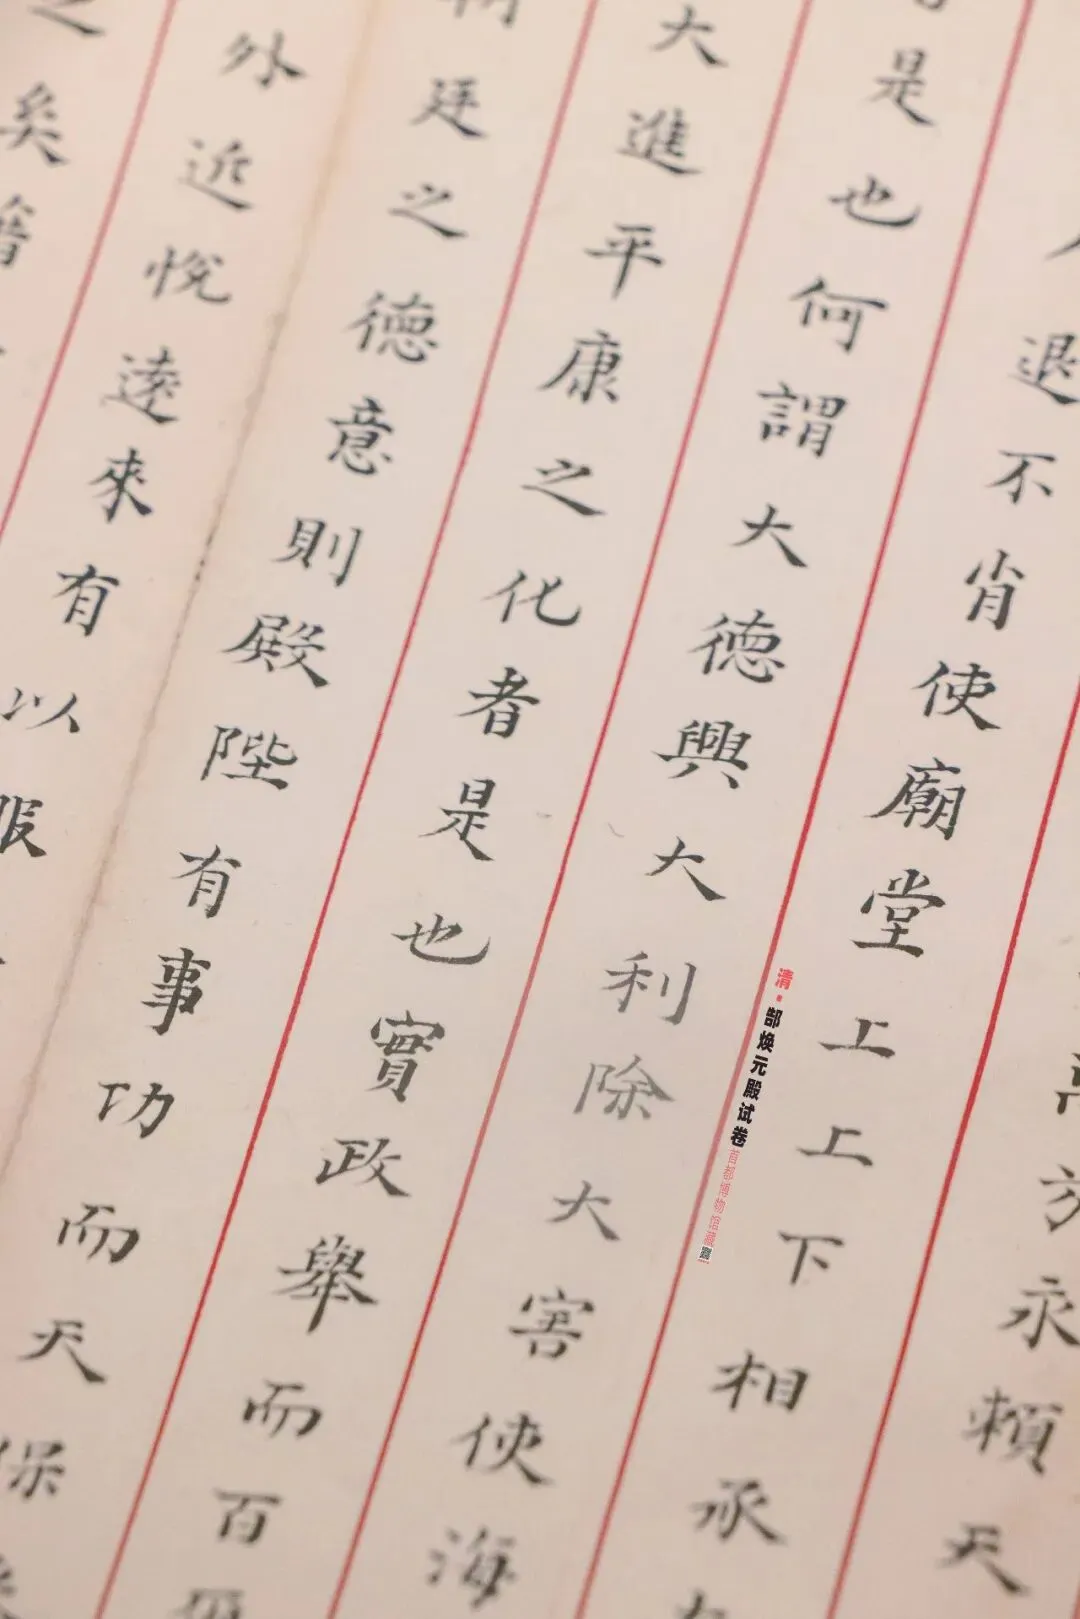 方永賴天
退不肖使廟堂上上下相承
是也何謂大德興大利除大害使海
大進平康之化者是也實政舉而百
廷之德意則殿陛有事功而天保
外近悅遠來有以服
之矣籍
清·郜焕元殿试卷首都博物馆藏